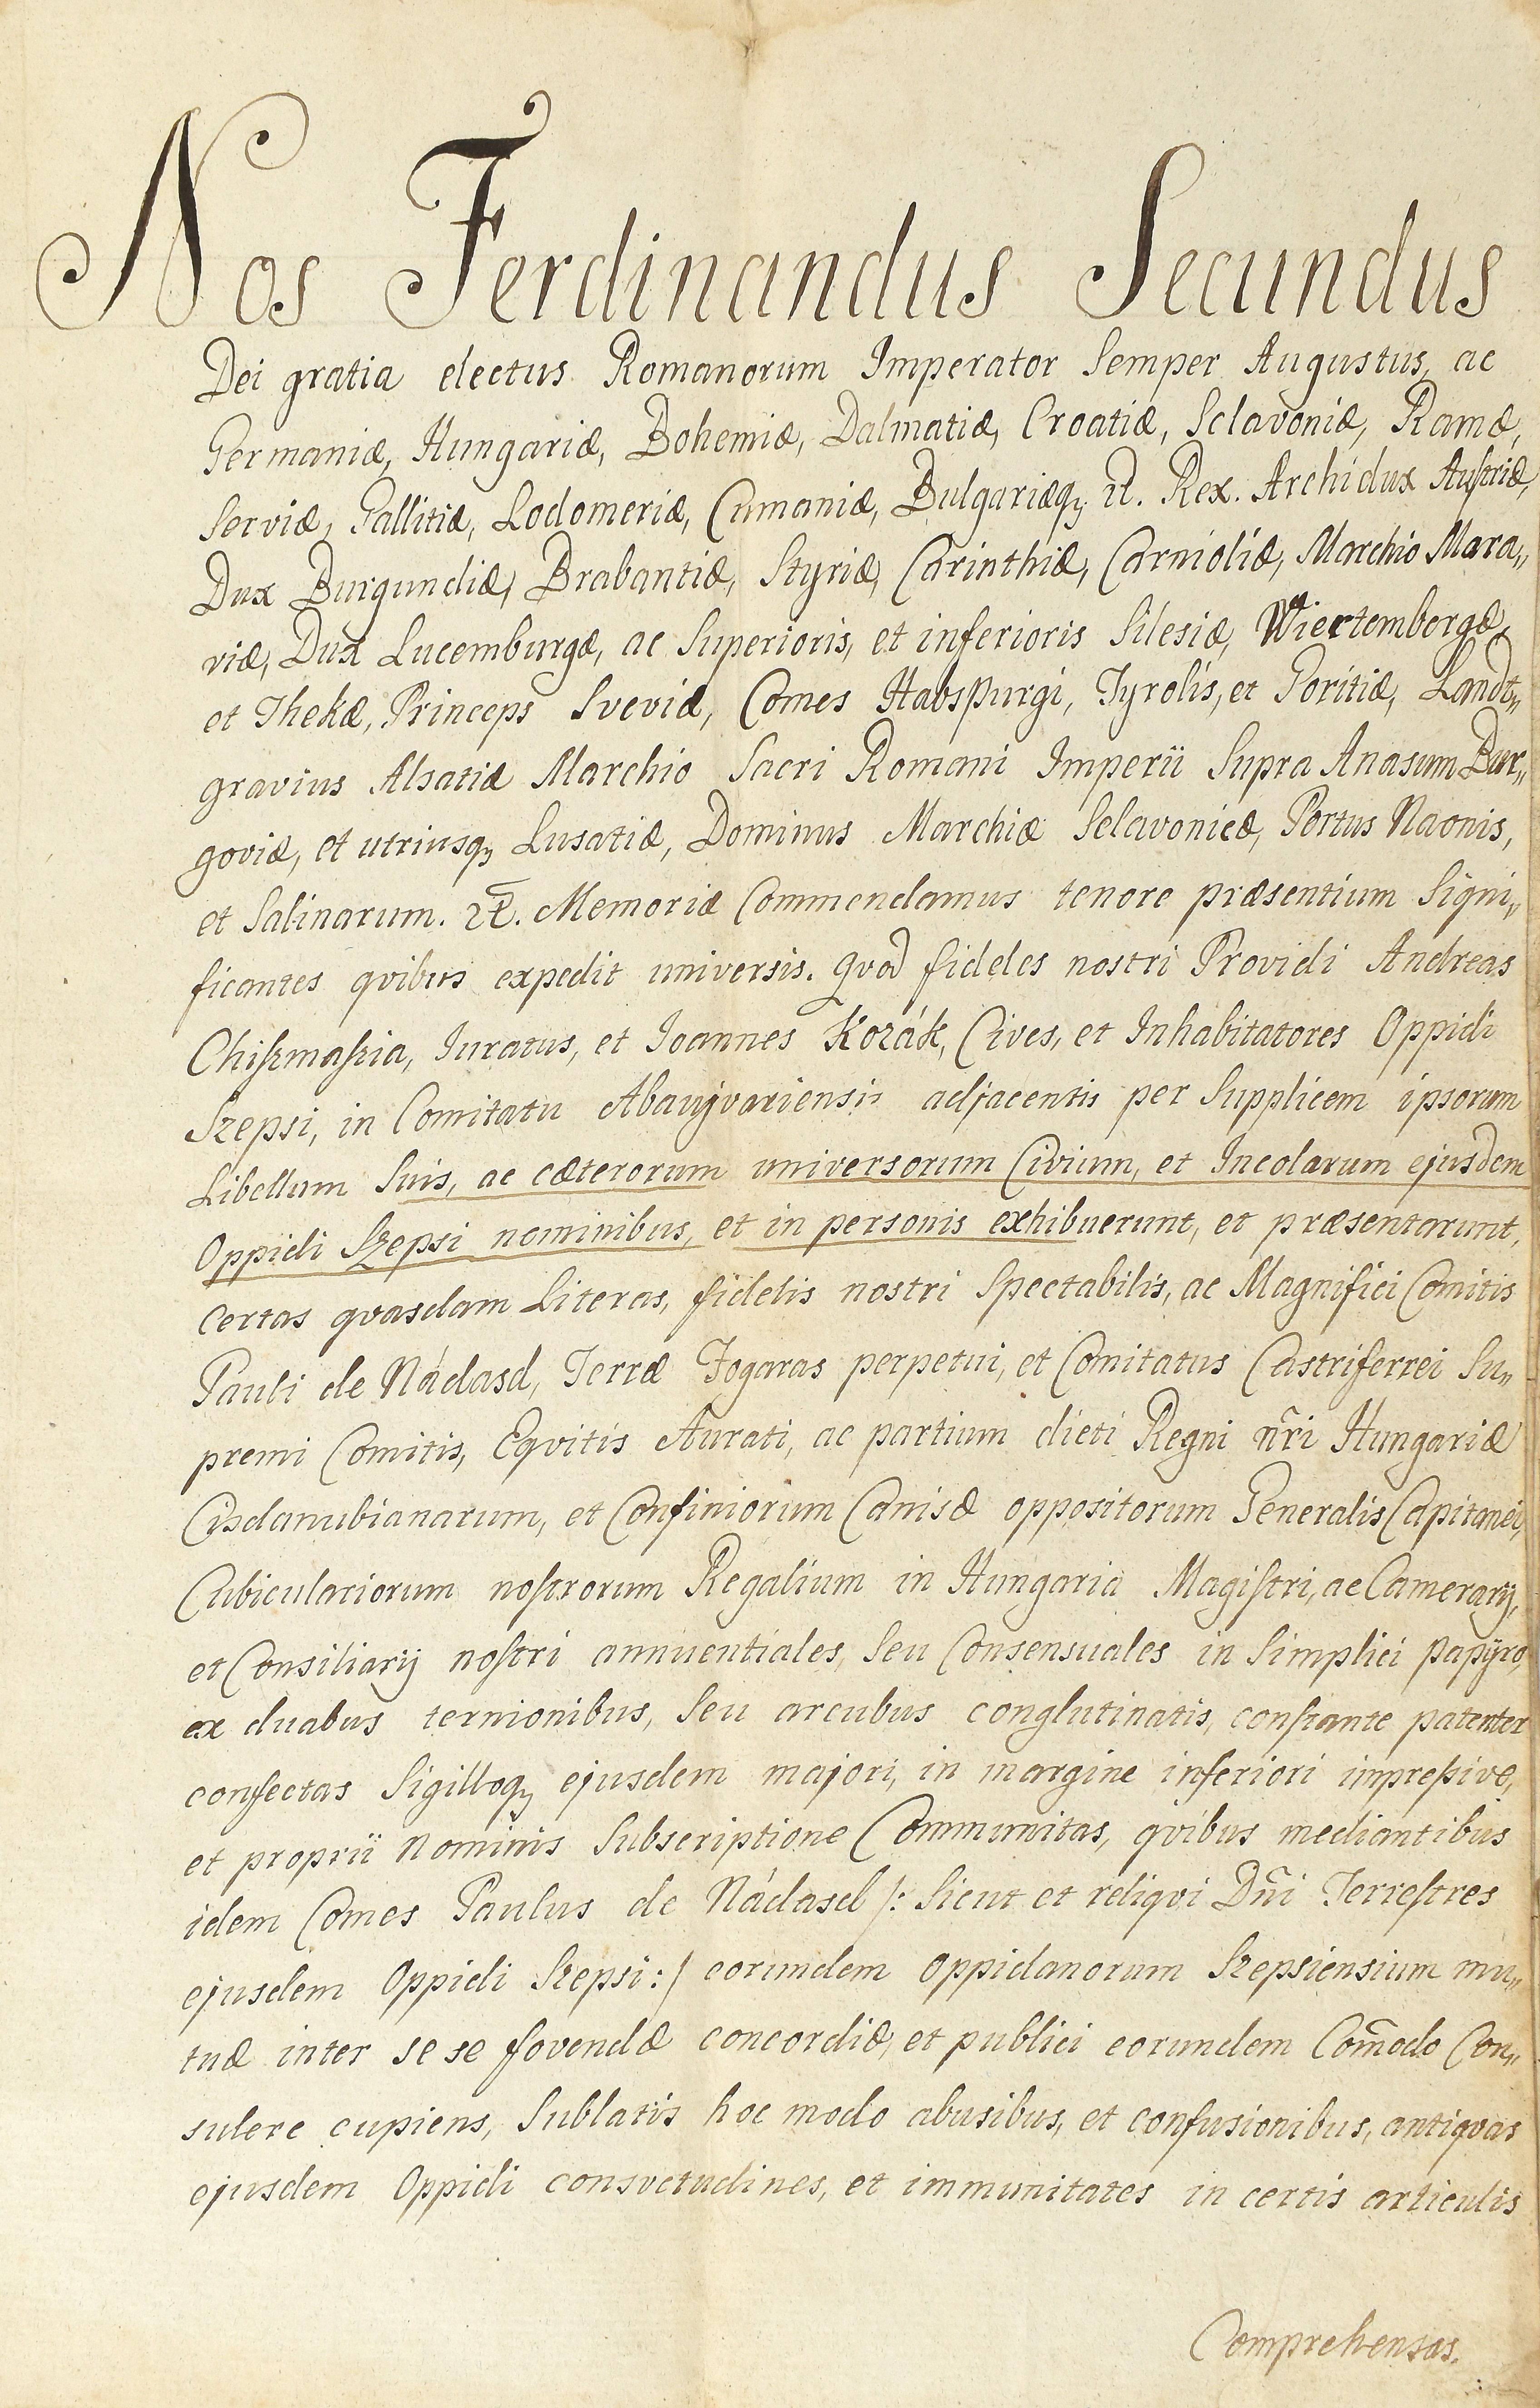 Nos Ferdinandus Secundus
Dei gratia electus Romanorum Imperator Semper Augustus, ac
Germaniæ, Hungariæ, Bohemiæ, Dalmatiæ, Croatiæ, Sclavoniæ, Ramæ,
Serviæ, Gallitiæ, Lodomeriæ, Cumaniæ, Bulgariæq, et. Rex. Archidux Austriæ,
Dux Burgundiæ, Brabantiæ, Styriæ, Carinthiæ, Carnioliæ, Marchio Mara„
viæ, Dux Lucemburgæ, ac Superioris, et inferioris Silesiæ, Wiertembergæ,
et Thekæ, Princeps Sveviæ, Comes Habspurgi, Tyrolis, et Goritiæ, Landt„
gravius Alsatiæ Marchio Sacri Romani Imperii Supra Anasum Bur„
goviæ, et utriusq, Lusatiæ, Dominus Marchiæ Sclavonicæ, Portus Naonis,
et Salinarum. et. Memoriæ Commendamus tenore præsentium Signi„
ficantes qvibus expedit universis. Qvod fideles nostri Providi Andreas
Chiszmaszia, Iuratus, et Ioannes Kozák, Cives, et Inhabitatores Oppidi
Szepsi, in Comitatu Abaujvariensi adjacentis per Supplicem ipsorum
Libellum Suis, ac cæterorum universorum Civium, et Incolarum ejusdem
Oppidi Szepsi nominibus, et in personis exhibuerunt, et præsentarunt,
certas qvasdam Literas, fidelis nostri Spectabilis, ac Magnifici Comitis
Pauli de Nádasd, Terræ Fogaras perpetui, et Comitatus Castriferrei Su„
premi Comitis, Eqvitis Aurati, ac partium dicti Regni nr̃i Hungariæ
Cisdanubianarum, et Confiniorum Canisæ oppositorum Generalis Capitanei,
Cubiculariorum nostrorum Regalium in Hungaria Magistri, ac Camerarij,
et Consiliarij nostri annuentiales, Seu Consensuales in Simplici papÿro,
ex duabus ternionibus, Seu arcubus conglutinatis, constante patenter
confectas Sigilloq, ejusdem majori, in margine inferiori impressive,
et proprii Nominis Subscriptione Communitas, qvibus mediantibus
idem Comes Paulus de Nádasd /: Sicut et reliqvi Dñi Terrestres
ejusdem Oppidi Szepsi :/ eorundem Oppidanorum Szepsiensium mu„
tuæ inter se se fovendæ concordiæ, et publici eorundem Com̃odo Con„
sulere cupiens, Sublatis hoc modo abusibus, et confusionibus, antiqvas
ejusdem Oppidi consvetudines, et immunitates in certis articulis
Comprehensas.